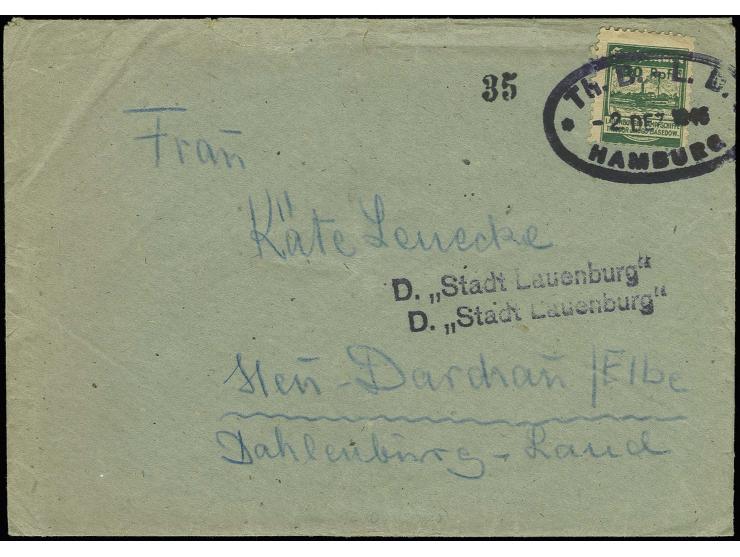 35
30 Rpf.
Th. B. L. D.
- 2. DEZ 1946
BASEDOW.
HAMBURG
Frau
Käte Lenecke
D. „Stadt Lauenburg“
D. „Stadt Lauenburg“
Neu-Darchau/Elbe
Dahlenburg-Land